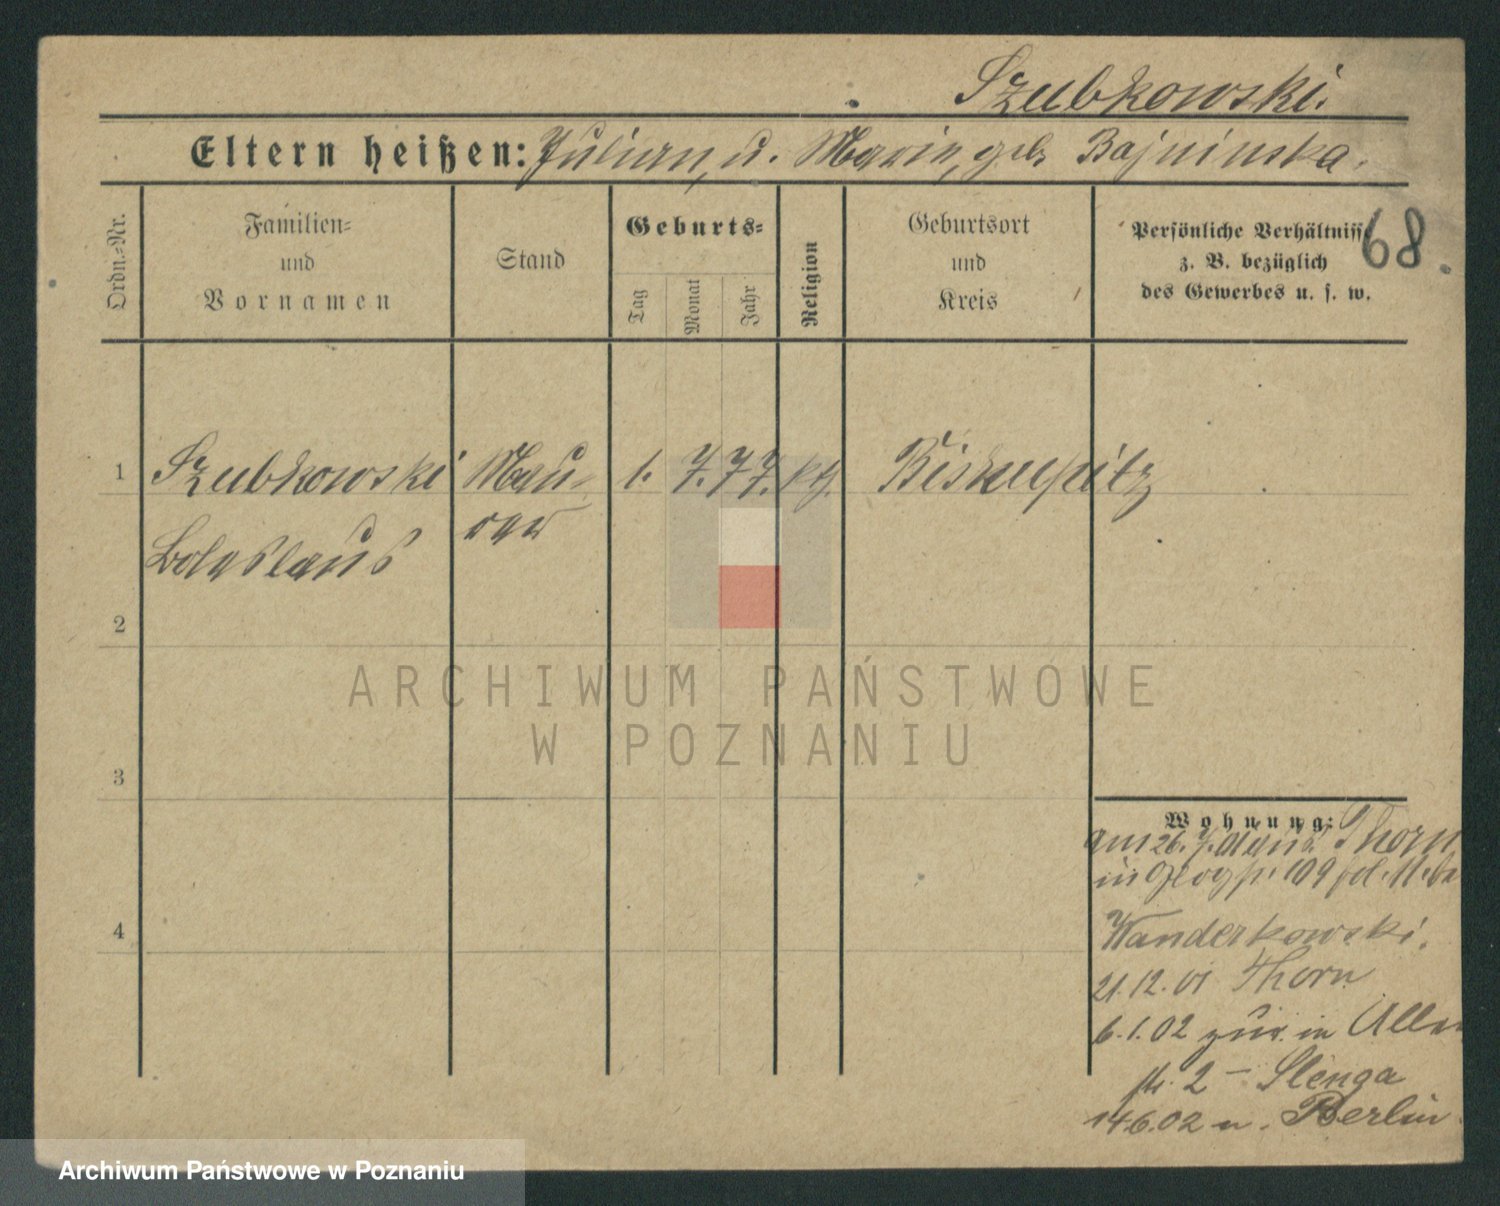 Szubkowski.
Eltern heißen: Julian, u. Marie, geb. Bajninska.
Ordn.=Nr.
Familien=
und
Vornamen
Stand
Geburts=
Tag
Monat
Jahr
Religion
Geburtsort
und
Kreis
Persönliche Verhältnisse
z. B. bezüglich
des Gewerbes u. s. w.
68.
1 Szubkowski Mau= 1. 7. 77. kth. Biskupitz
Boleslaus rer
2
3
4
Wohnung:
am 26. 7. aus Thorn
in 109 fol. 11. ba
Wanderkowski.
21. 12. 01 Thorn
6. 1. 02 zur. in
str. 2 - Slenga
14.6.02 n. Berlin
ARCHIWUM PAŃSTWOWE
W POZNANIU
Archiwum Państwowe w Poznaniu